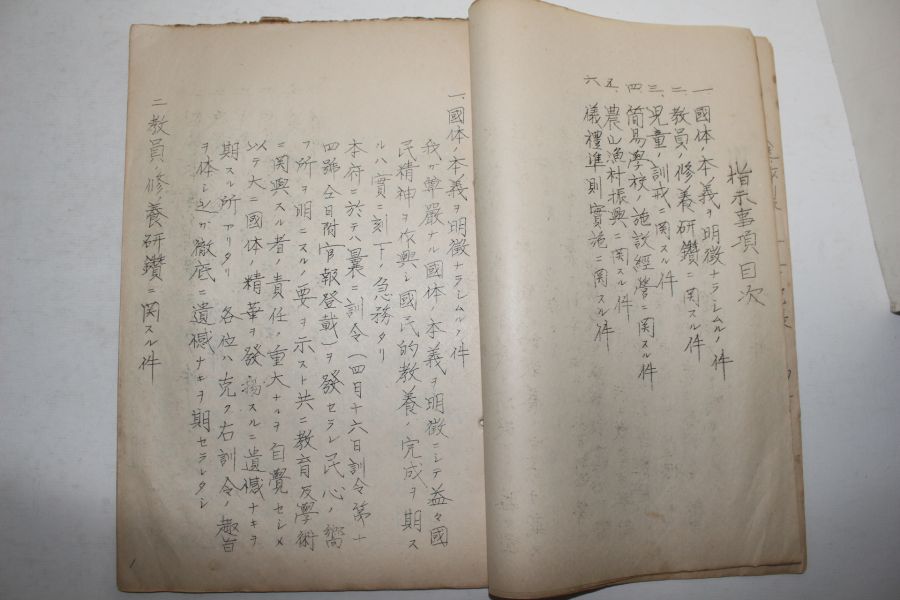 指示事項目次
一、國体ノ本義ヲ明徴ナラシムルノ件
二、教員ノ修養研鑽ニ関スル件
三、児童ノ訓戒ニ関スル件
四、簡易學校ノ施設經營ニ関スル件
五、農山漁村振興ニ関スル件
六、儀禮準則實施ニ関スル件
一、國体ノ本義ヲ明徴ナラシムルノ件
我ガ尊嚴ナル國体ノ本義ヲ明徴ニシテ益々國
民精神ヲ作興シ國民的教養ノ完成ヲ期ス
ルハ實ニ刻下ノ急務タリ
本府ニ於テハ曩ニ訓令（四月十六日訓令第十
四號仝日附官報登載）ヲ發セラレ民心ノ嚮
フ所ヲ明ニスルノ要ヲ示スト共ニ教育及學術
ニ関與スル者ノ責任ノ重大ナルヲ自覺セシメ
以テ大ニ國体ノ精華ヲ發揚スルニ遺憾ナキヲ
期スル所アリタリ 各位ハ克ク右訓令ノ趣旨
ヲ体シ之ガ徹底ニ遺憾ナキヲ期セラレタシ
二 教員修養研鑽ニ関スル件